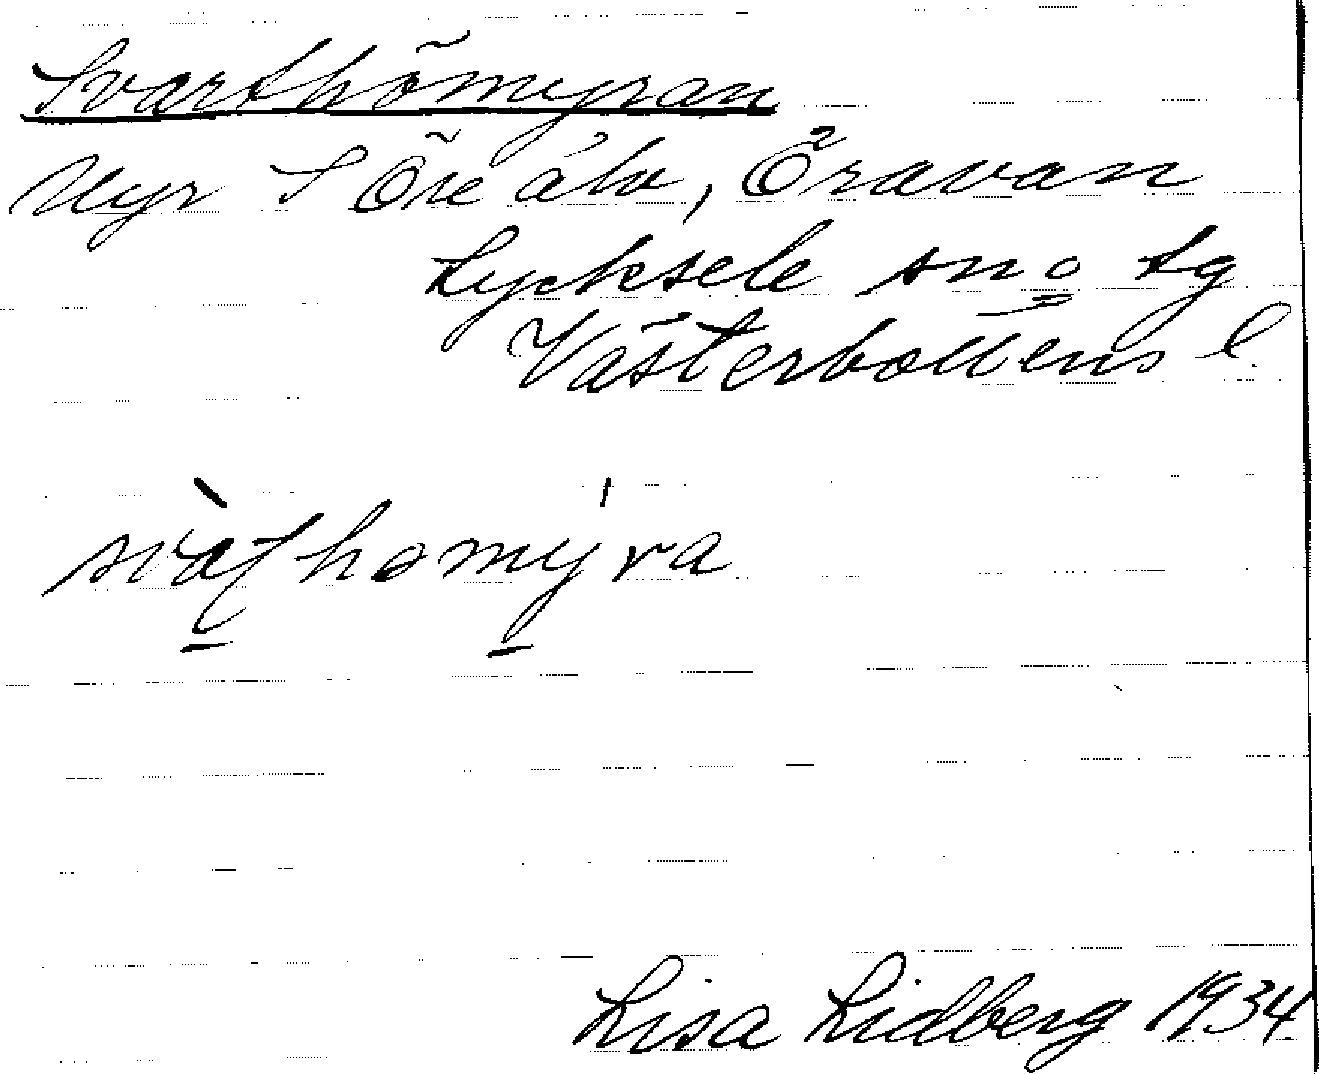 Svarthömyran
Myr S Öre älv, Öravan
Lycksele sn o Lg
Västerbottens l.
svaṭhomyra
Lisa Lidberg 1934